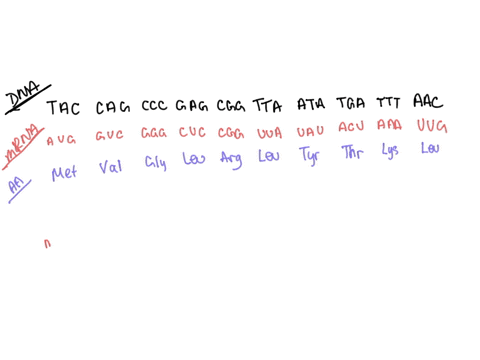 DNA TAC CAG CCC GAG CGG TTA ATA TGA TTT AAC
mRNA AUG GUC GGG CUC CGG UUA UAU ACU AAA UUG
AA Met Val Gly Leu Arg Leu Tyr Thr Lys Leu